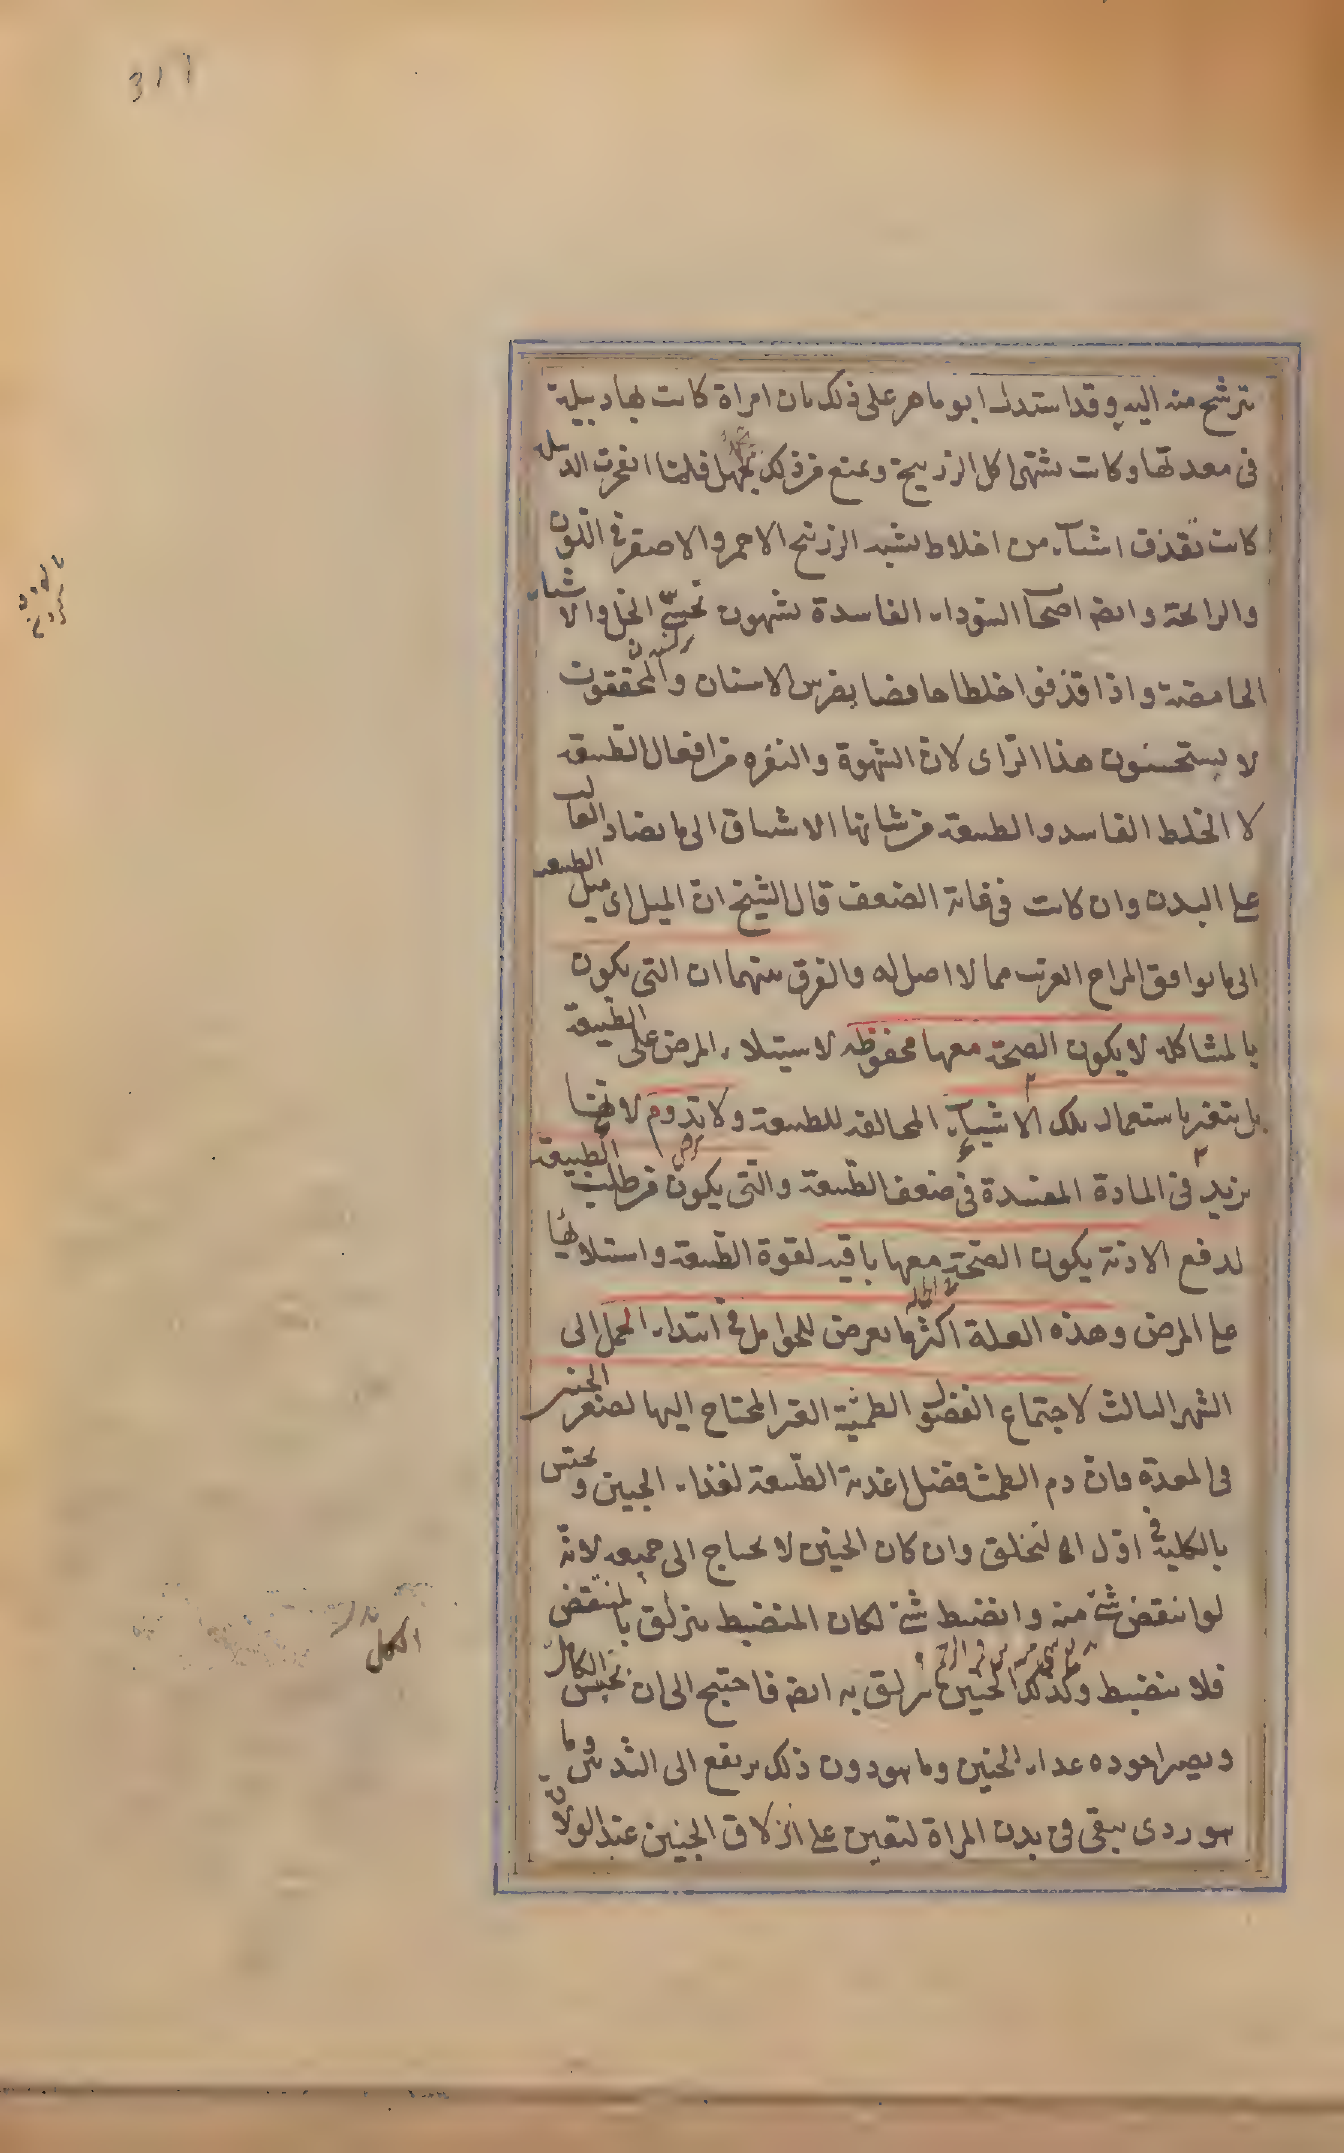 تترشح منه اليه وقد استدل ابو ماهر على ذلك بان امراة كانت بها دبيلة
فى معدتها وكانت تشتهى اكل الزرنيخ وتمنع من ذلك فلما انفجرت الدبيلة
كانت تقذف اشياء من اخلاط تشبه الزرنيخ الاحمر والاصفر فى اللون
والرائحة وايضا اصحاب السوداء الفاسدة يشتهون تحسّى الخل والاشياء
الحامضة واذا قذفوا خلطا حامضا يضرس الاسنان والمحققون
لا يستحسنون هذا الرّاى لان الشهوة والنفره من افعال الطبيعة
لا الخلط الفاسد والطبيعة من شانها الاشتياق الى ما يضاد الغالب
على البدن وان كانت فى غاية الضعف قال الشيخ ان الميل اى ميل الطبيعة
الى ما يوافق المزاج الغريب مما لا اصل له والفرق بينهما ان التى يكون
بالمشاكلة لا يكون الصحة معها محفوظه لاستيلاء المرض على الطبيعة
بل يتغير باستعمال تلك الاشياء المخالفة للطبيعة ولا تدوم لانها
يزيد فى المادة المفسدة فى ضعف الطبيعة والتى يكون من طلب الطبيعة
لدفع الاذية يكون الصحة معها باقيه لقوة الطبيعة واستيلائها
على المرض وهذه العلة اكثر ما يعرض للحوامل فى ابتداء الحمل الى
الشهر الثالث لاجتماع الفضول الطمثية الغير المحتاج اليها لصغر الجنين
فى المعدة فان دم الطمث فضل اغدية الطبيعة لغذاء الجنين و يحتبس
بالكلية فى اول التخلق وان كان الجنين لا يحتاج الى جميعه لانه
لو انتفض شئ منه وانضبط شئ لكان المنضبط ينزلق بالمنتفض
فلا ينضبط وكذلك الجنين ينزلق به ايضا فاحتيج الى ان يحتبس الكل
ويصير اجوده غداء الجنين وما هو دون ذلك يرتفع الى الثديين وما
هو ردى يبقى فى بدن المراة ليعين على انزلاق الجنين عند الولادة